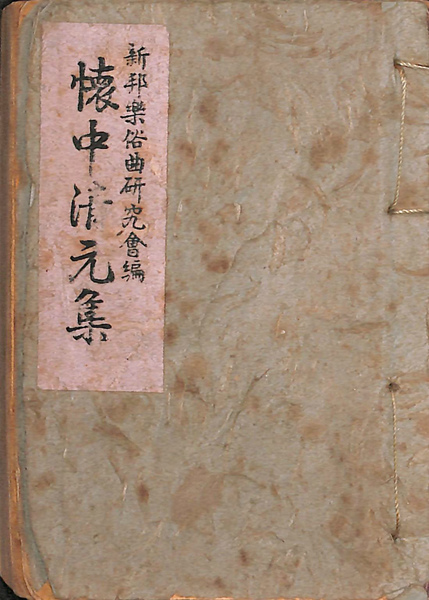 新邦樂俗曲研究會編
懷中清元集